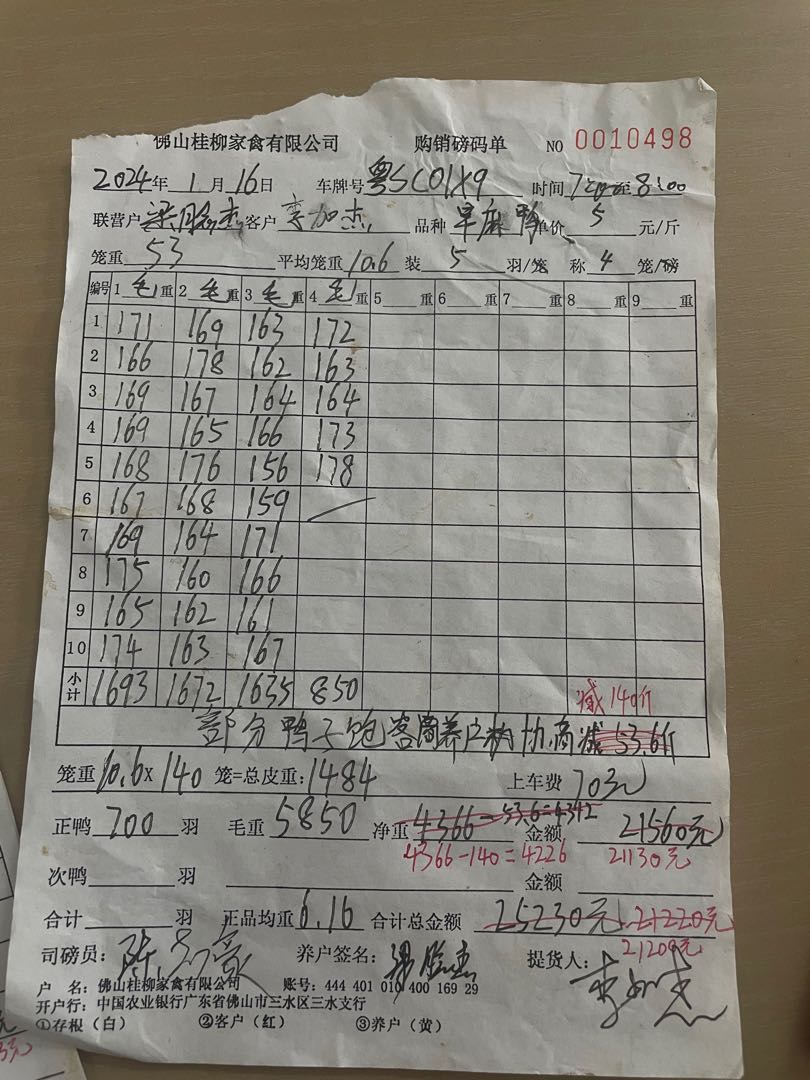 佛山桂柳家禽有限公司 购销磅码单 NO 0010498
2024年 1月16日 车牌号 粤SC01X9 时间 至8:00
联营户 客户 李加杰 品种 早麻鸭 单价 5 元/斤
笼重 53 平均笼重 10.6 装 5 羽/笼 称 4 笼/磅
编号 1 毛 重 2 毛 重 3 毛 重 4 毛 重 5 重 6 重 7 重 8 重 9 重
1 171 169 163 172
2 166 178 162 163
3 169 167 164 164
4 169 165 166 173
5 168 176 156 178
6 167 168 159
7 169 164 171
8 175 160 166
9 165 162 161
10 174 163 167
小计 1693 1672 1635 850 减140斤
部分鸭子饱客 养户 协商减53.6斤
笼重 10.6x 140 笼=总皮重: 1484 上车费 70元
正鸭 700 羽 毛重 5850 净重 4366-53.6=4312 金额 21560元
4366-140=4226 21130元
次鸭 羽 金额
合计 羽 正品均重 6.16 合计总金额 25230元 21220元
21200元
司磅员: 养户签名: 提货人:
户 名: 佛山桂柳家禽有限公司 账号: 444 401 010 400 169 29
开户行: 中国农业银行广东省佛山市三水区三水支行
①存根(白) ②客户(红) ③养户(黄)